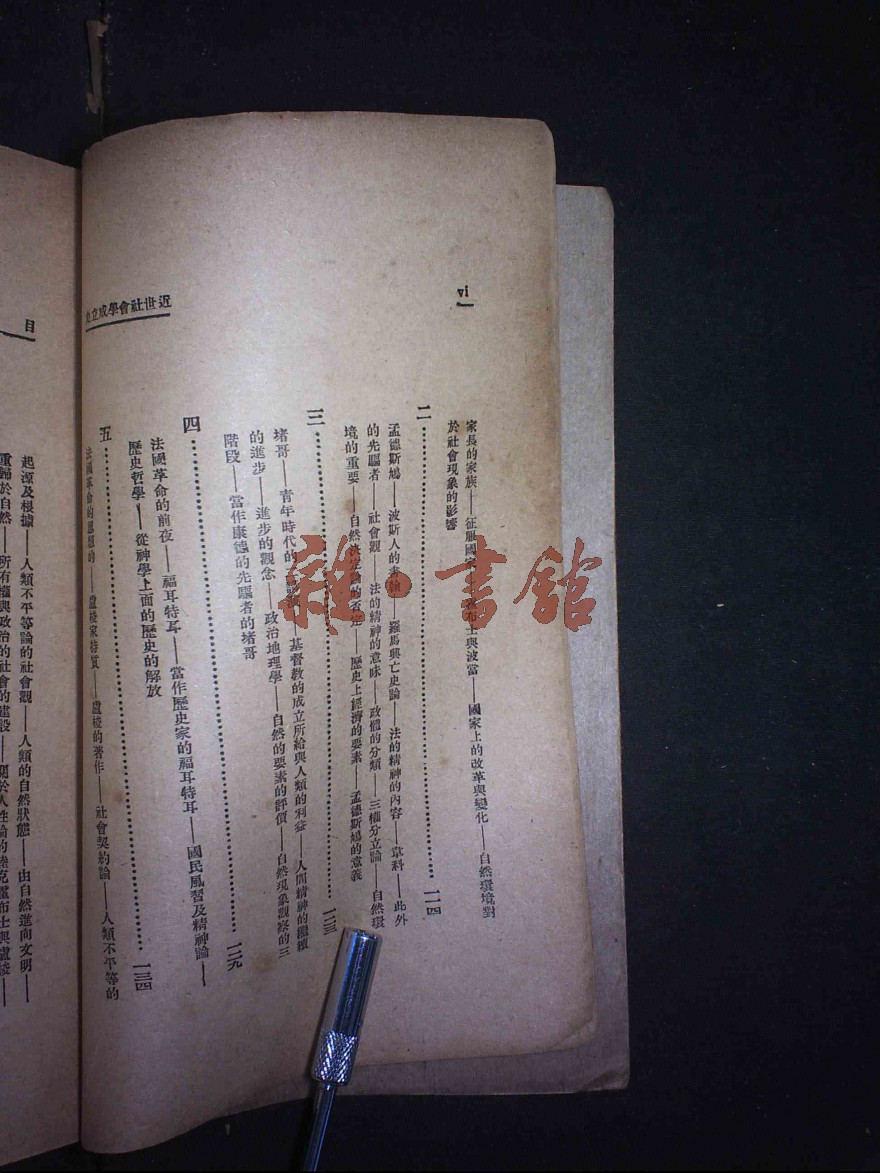 vi
近世社會學成立史
家長的家族——征服國家——霍布士與波當——國家上的改革與變化——自然環境對
於社會現象的影響
二……一一四
孟德斯鳩——波斯人的書翰——羅馬興亡史論——法的精神的內容——章科——此外
的先驅者——社會觀——法的精神的意味——政體的分類——三權分立論——自然環
境的重要——自然決定論的否定——歷史上經濟的要素——孟德斯鳩的意義
三……一二三
堵哥——青年時代的——基督教的成立所給與人類的利益——人間精神的繼續
的進步——進步的觀念——政治地理學——自然的要素的評價——自然現象觀察的三
階段——當作康德的先驅者的堵哥
四……一二九
法國革命的前夜——福耳特耳——當作歷史家的福耳特耳——國民風習及精神論——
歷史哲學——從神學上面的歷史的解放
五……一三四
法國革命的思想的——盧梭家特質——盧梭的著作——社會契約論——人類不平等的
目
起源及根據——人類不平等論的社會觀——人類的自然狀態——由自然進向文明——
重歸於自然——所有權與政治的社會的建設——關於人性論的陸克霍布士與盧梭——
雜·書館